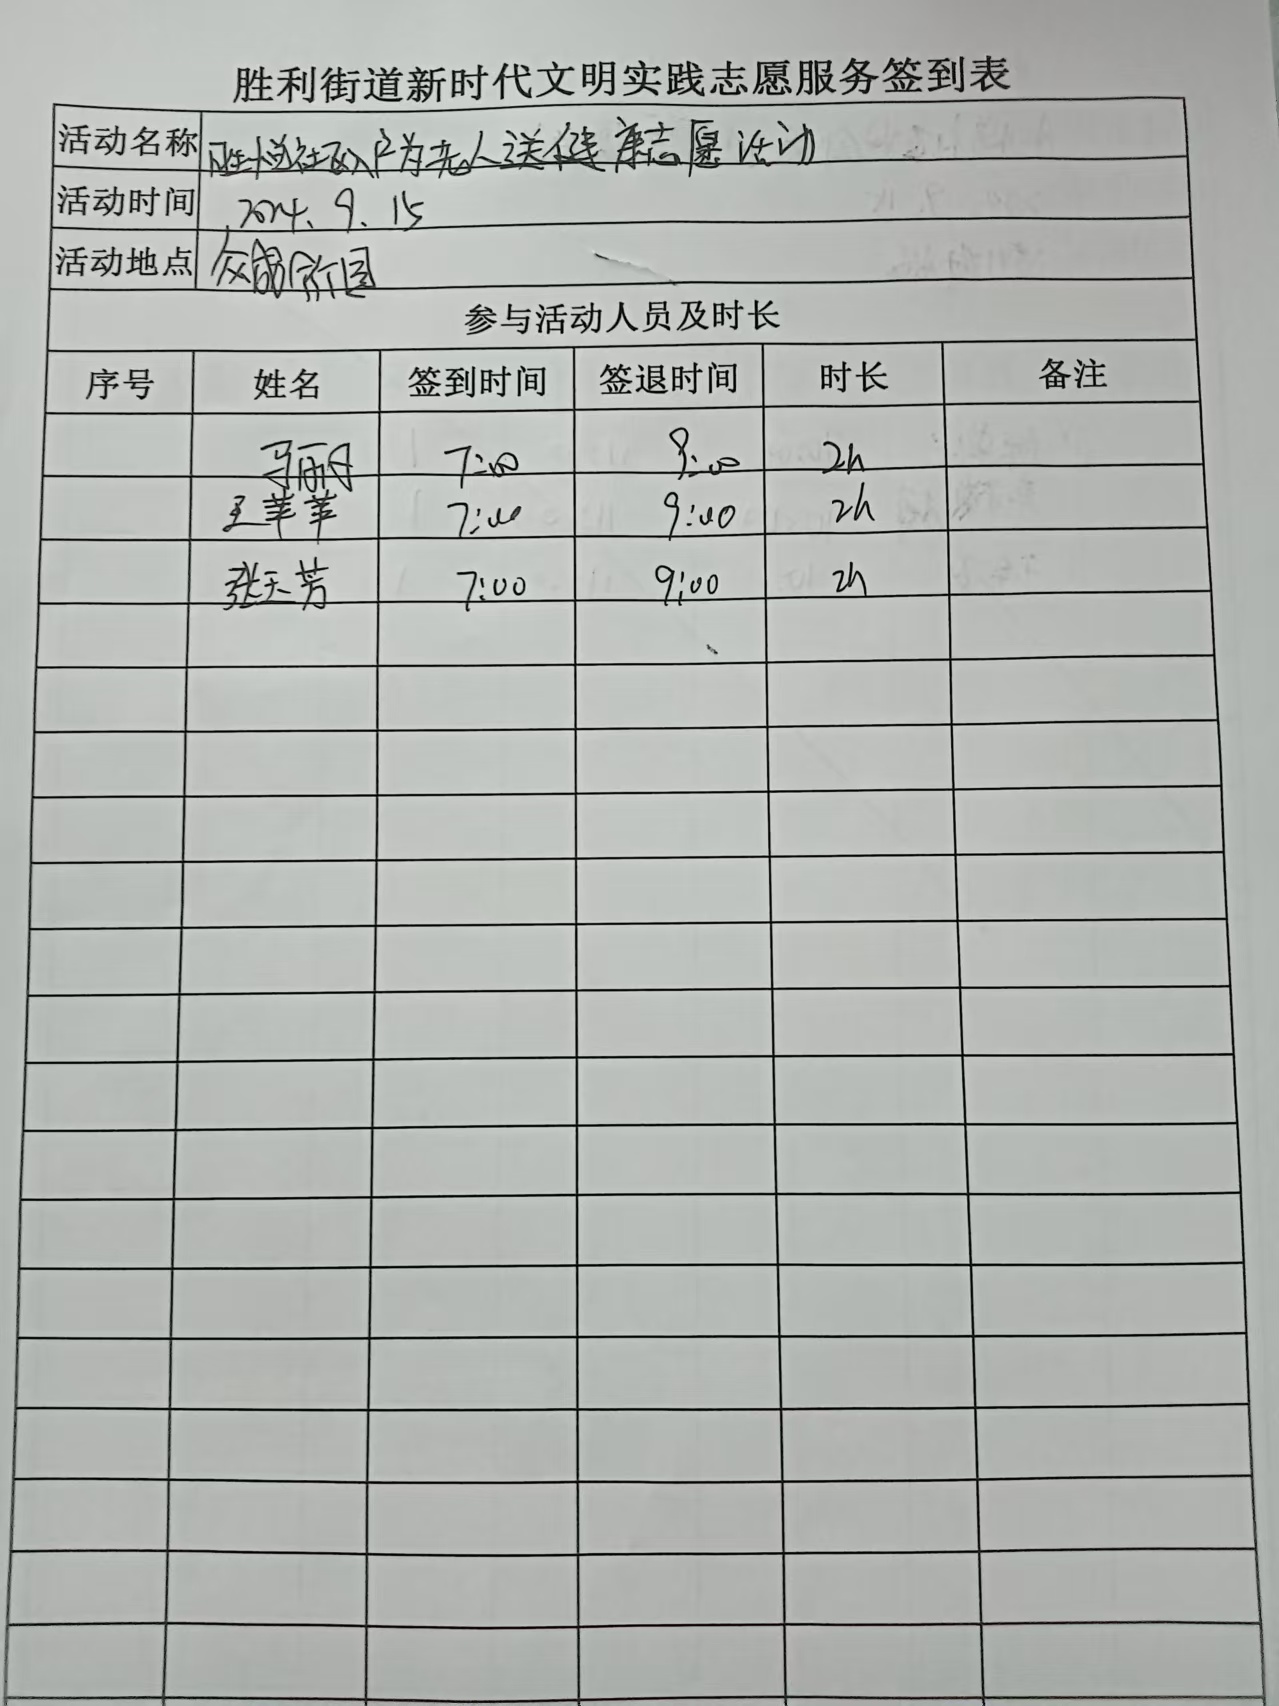 胜利街道新时代文明实践志愿服务签到表
活动名称 胜悦社区入户为老人送健康志愿活动
活动时间 2024.9.15
活动地点 众成家园
参与活动人员及时长
序号 姓名 签到时间 签退时间 时长 备注
马丽丹 7:00 9:00 2h
王苹苹 7:00 9:00 2h
张天芳 7:00 9:00 2h